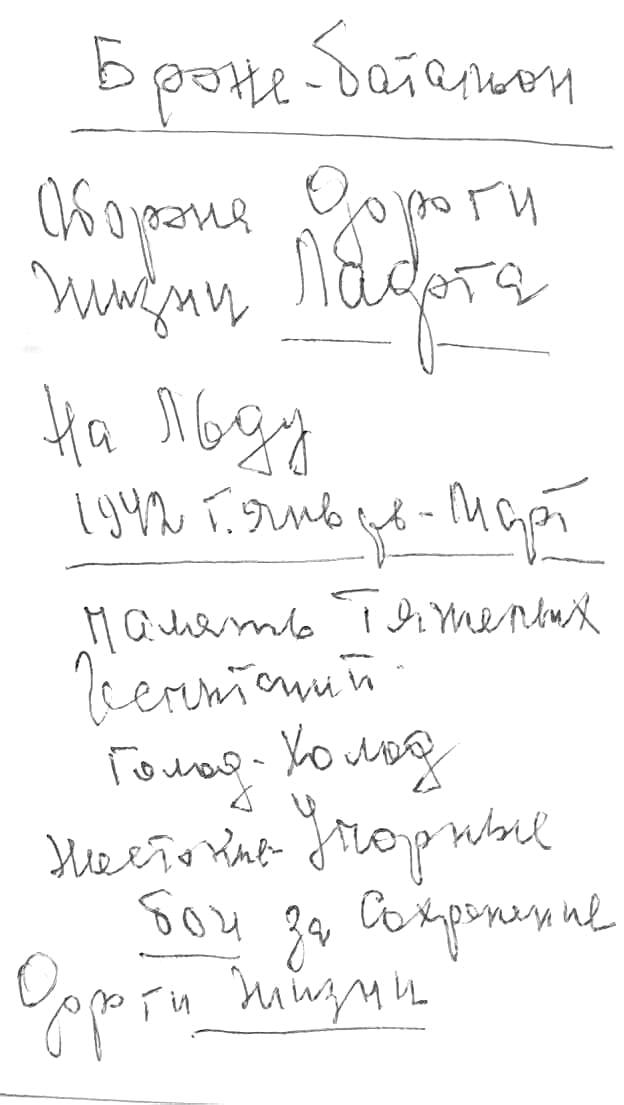 Броне-батальон
Оборона Дороги
жизни Ладога
На Льду
1942 г. январь-Март
Память Тяжелых
Испытаний
Голод-Холод
Жестокие-Упорные
бои за Сохранение
Дороги жизни